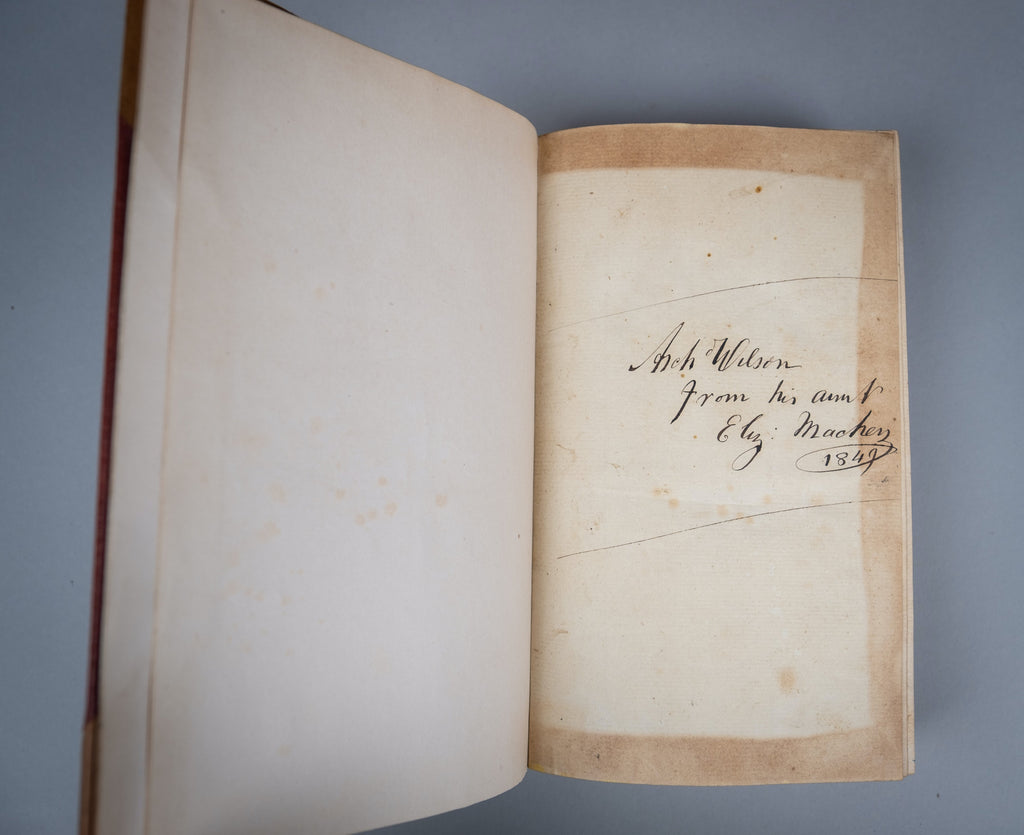 Archd Wilson
from his aunt
Eliz: Macken
1849